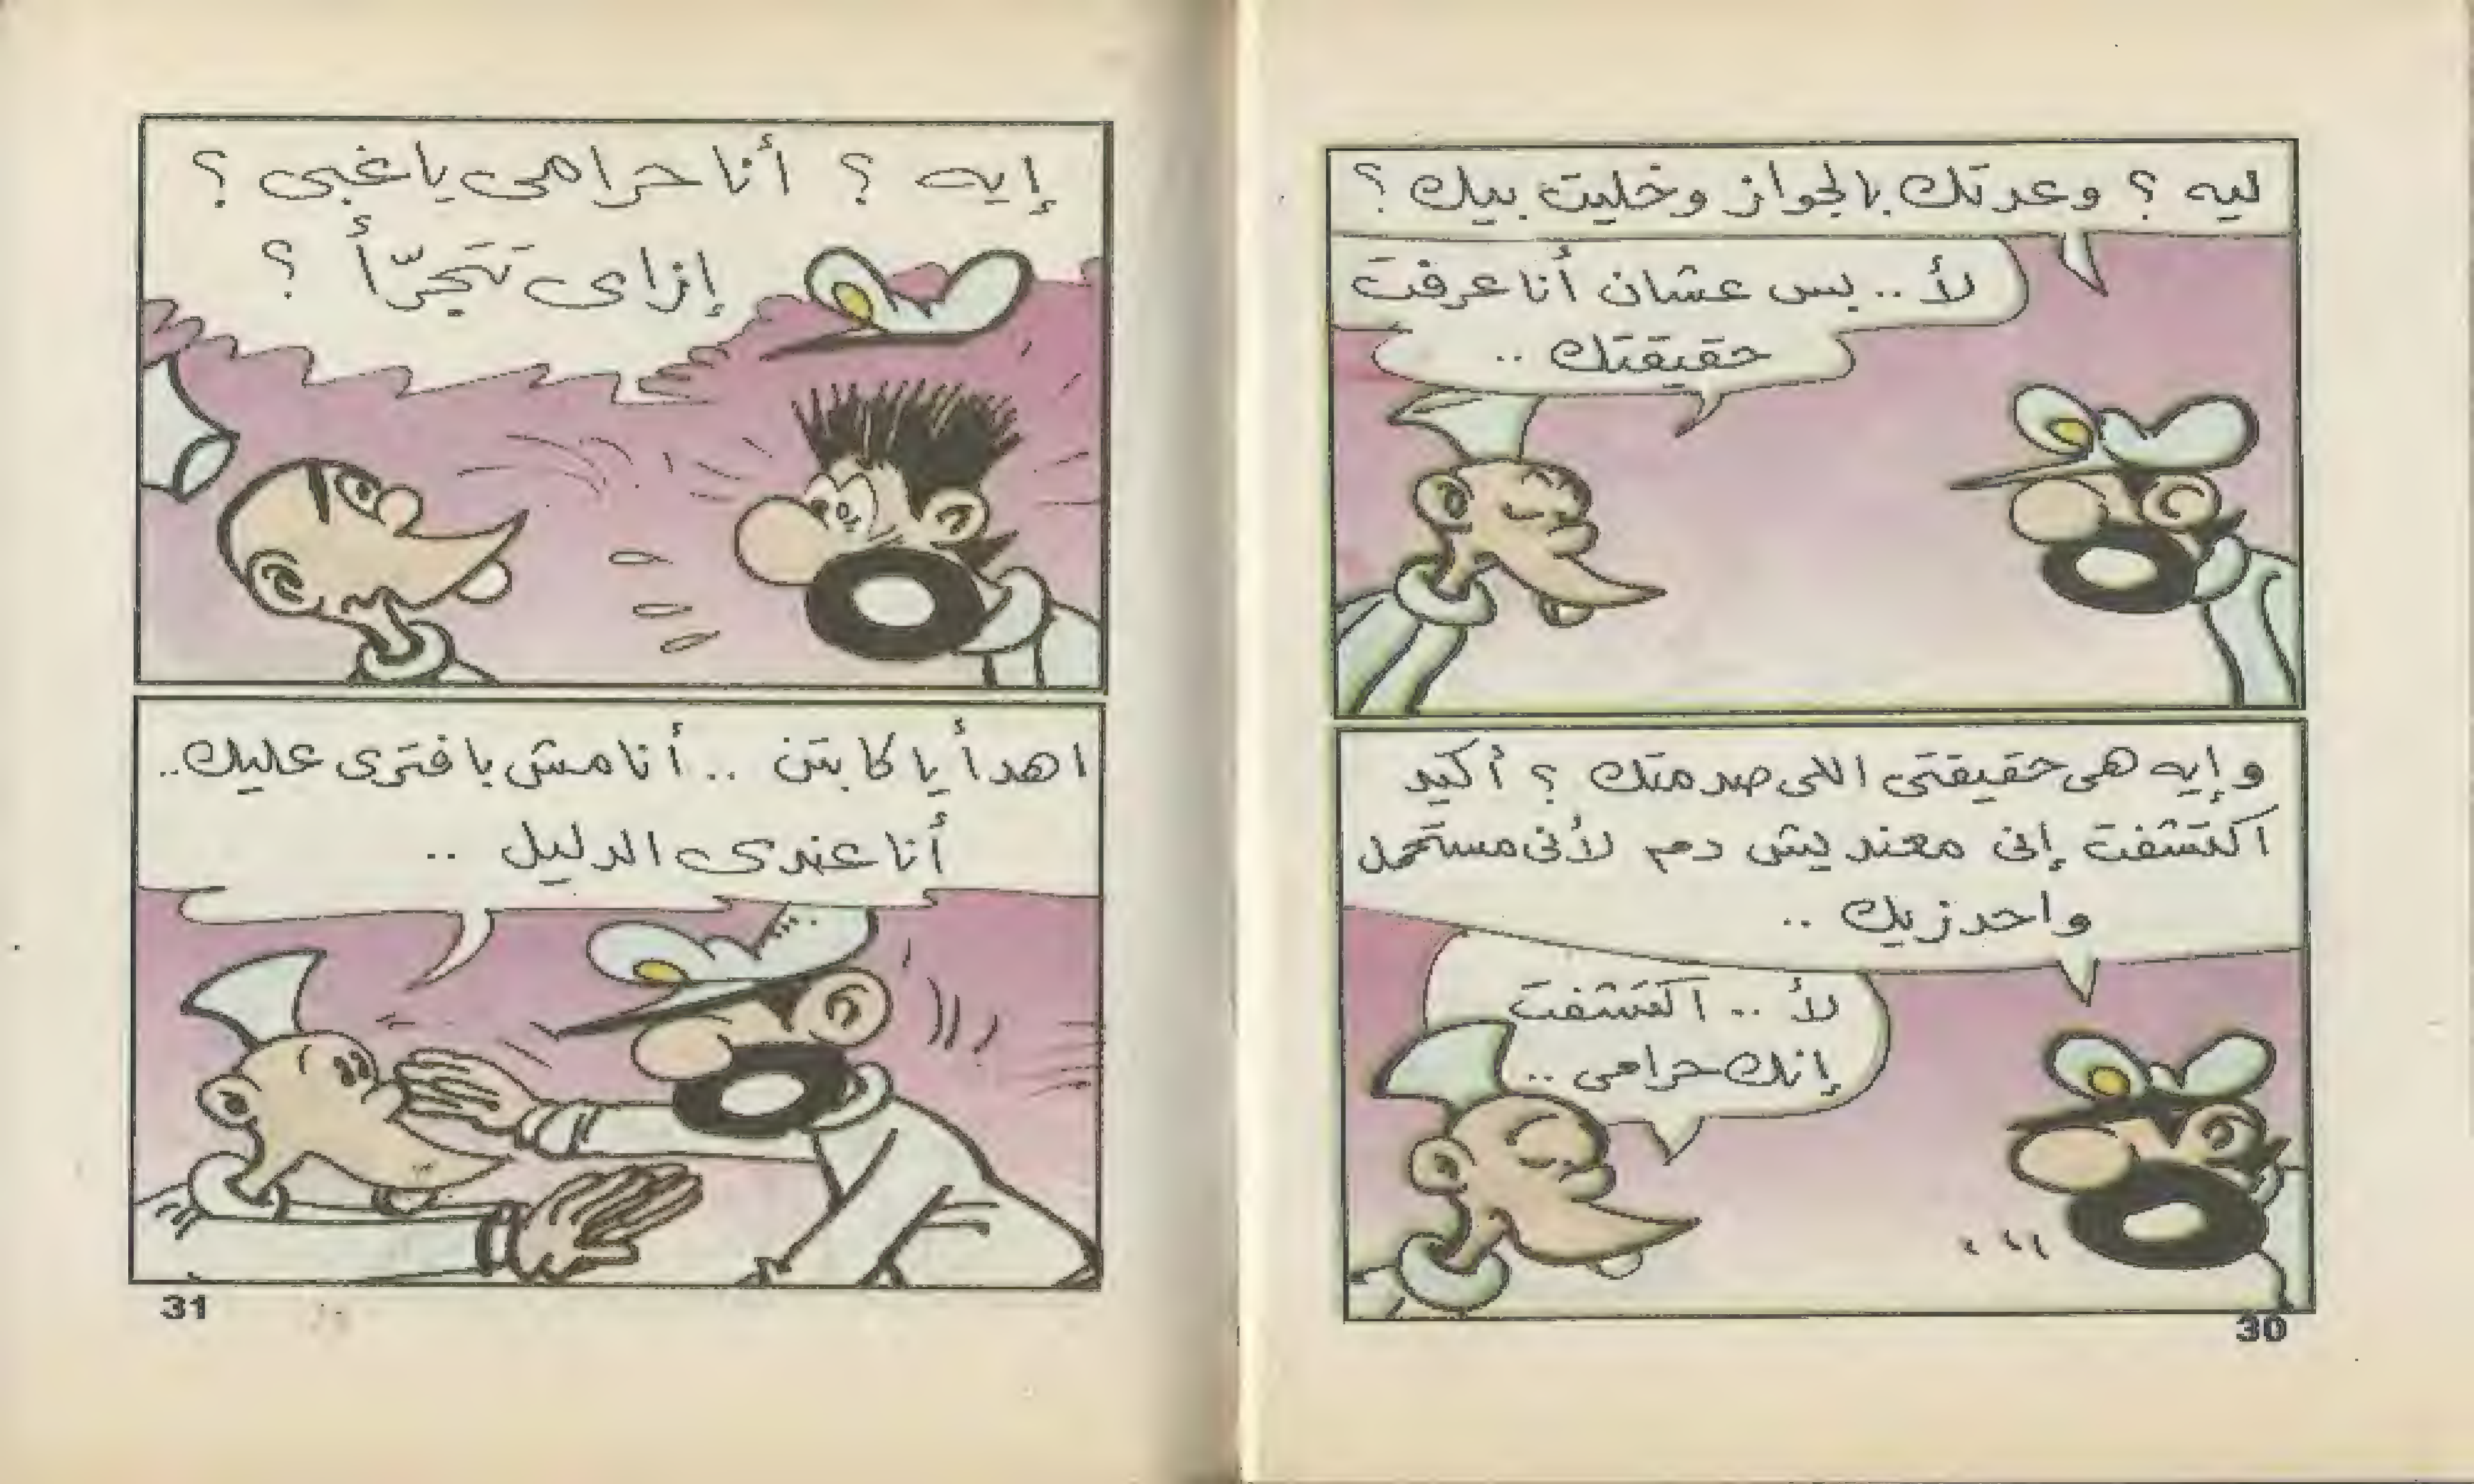 ليه ؟ وعدتك بالجواز وخليت بيك ؟
لأ .. بس عشان أنا عرفت
حقيقتك ..
وإيه هى حقيقتى اللى صدمتك ؟ أكيد
اكتشفت إنى معنديش دم لأنى مستحمل
واحد زيك ..
لأ .. اكتشفت
إنك حرامى ..
30
إيه ؟ أنا حرامى يا غبى ؟
إزاى تتجرّأ ؟
اهدأ يا كابتن .. أنا مش بافترى عليك ..
أنا عندى الدليل ..
31